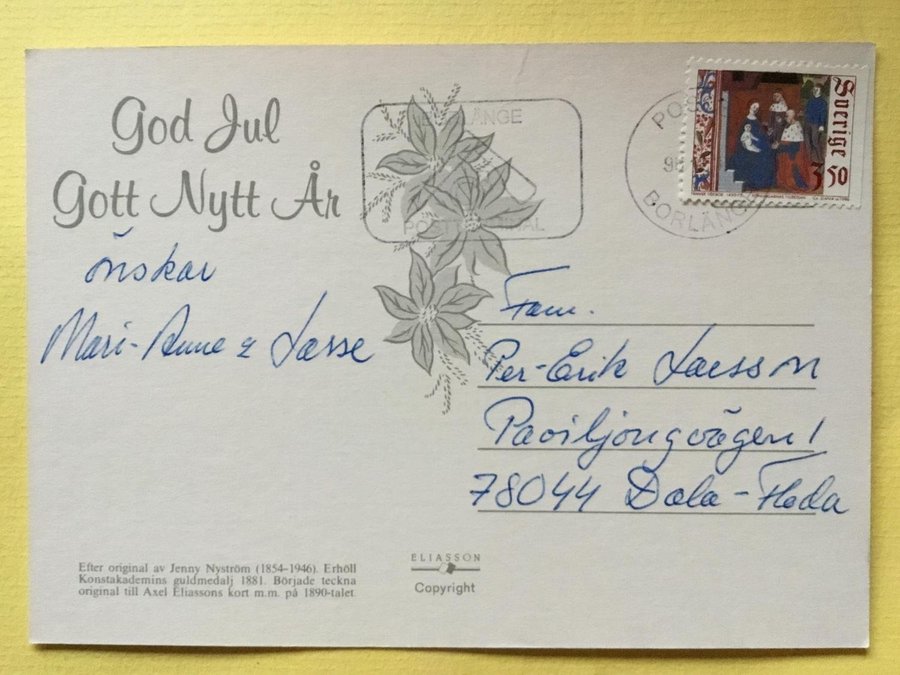 God Jul
Gott Nytt År
önskar
Mari-Anne & Lasse
BORLÄNGE
POSTTERMINAL
POST
BORLÄNGE
Sverige
3 50
Fam.
Per-Erik Larsson
Paviljongvägen 1
78044 Dala-Floda
Efter original av Jenny Nyström (1854–1946). Erhöll
Konstakademins guldmedalj 1881. Började teckna
original till Axel Eliassons kort m.m. på 1890-talet.
ELIASSON
Copyright